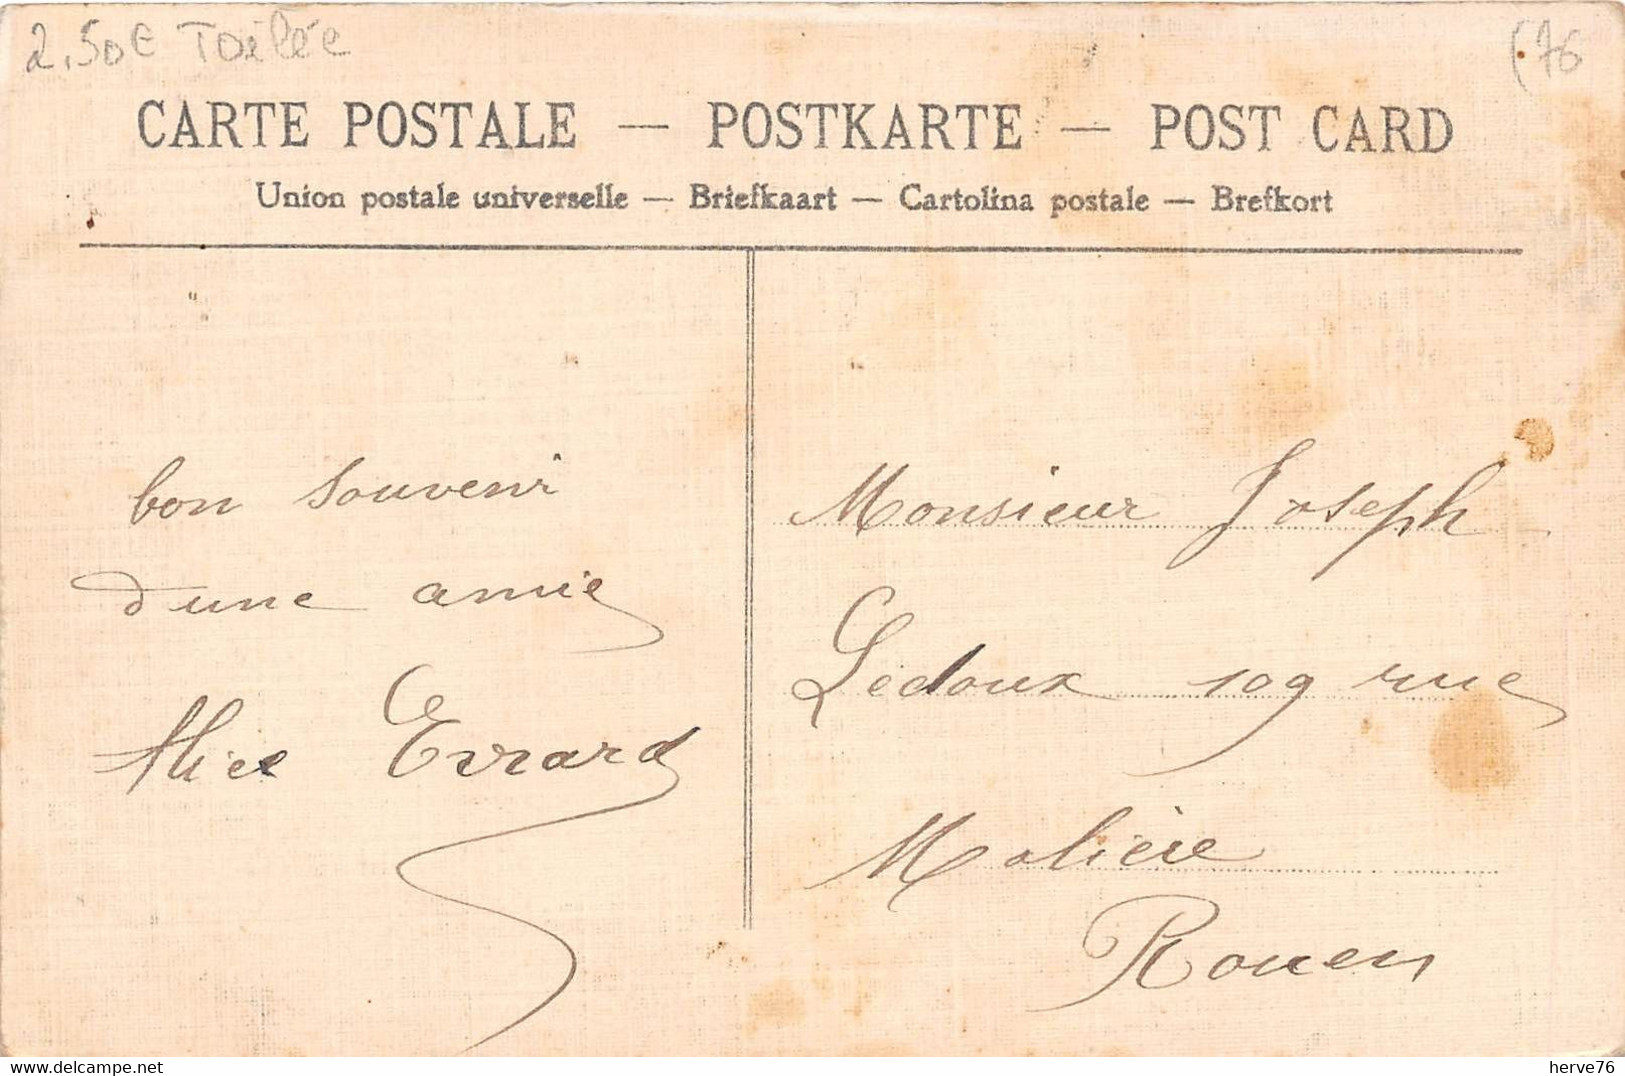 2,50€ Toilée
(76
CARTE POSTALE — POSTKARTE — POST CARD
Union postale universelle — Briefkaart — Cartolina postale — Brefkort
bon souvenir
d'une amie
Alice Evrard
Monsieur Joseph
Ledoux 109 rue
Molière
Rouen
herve76